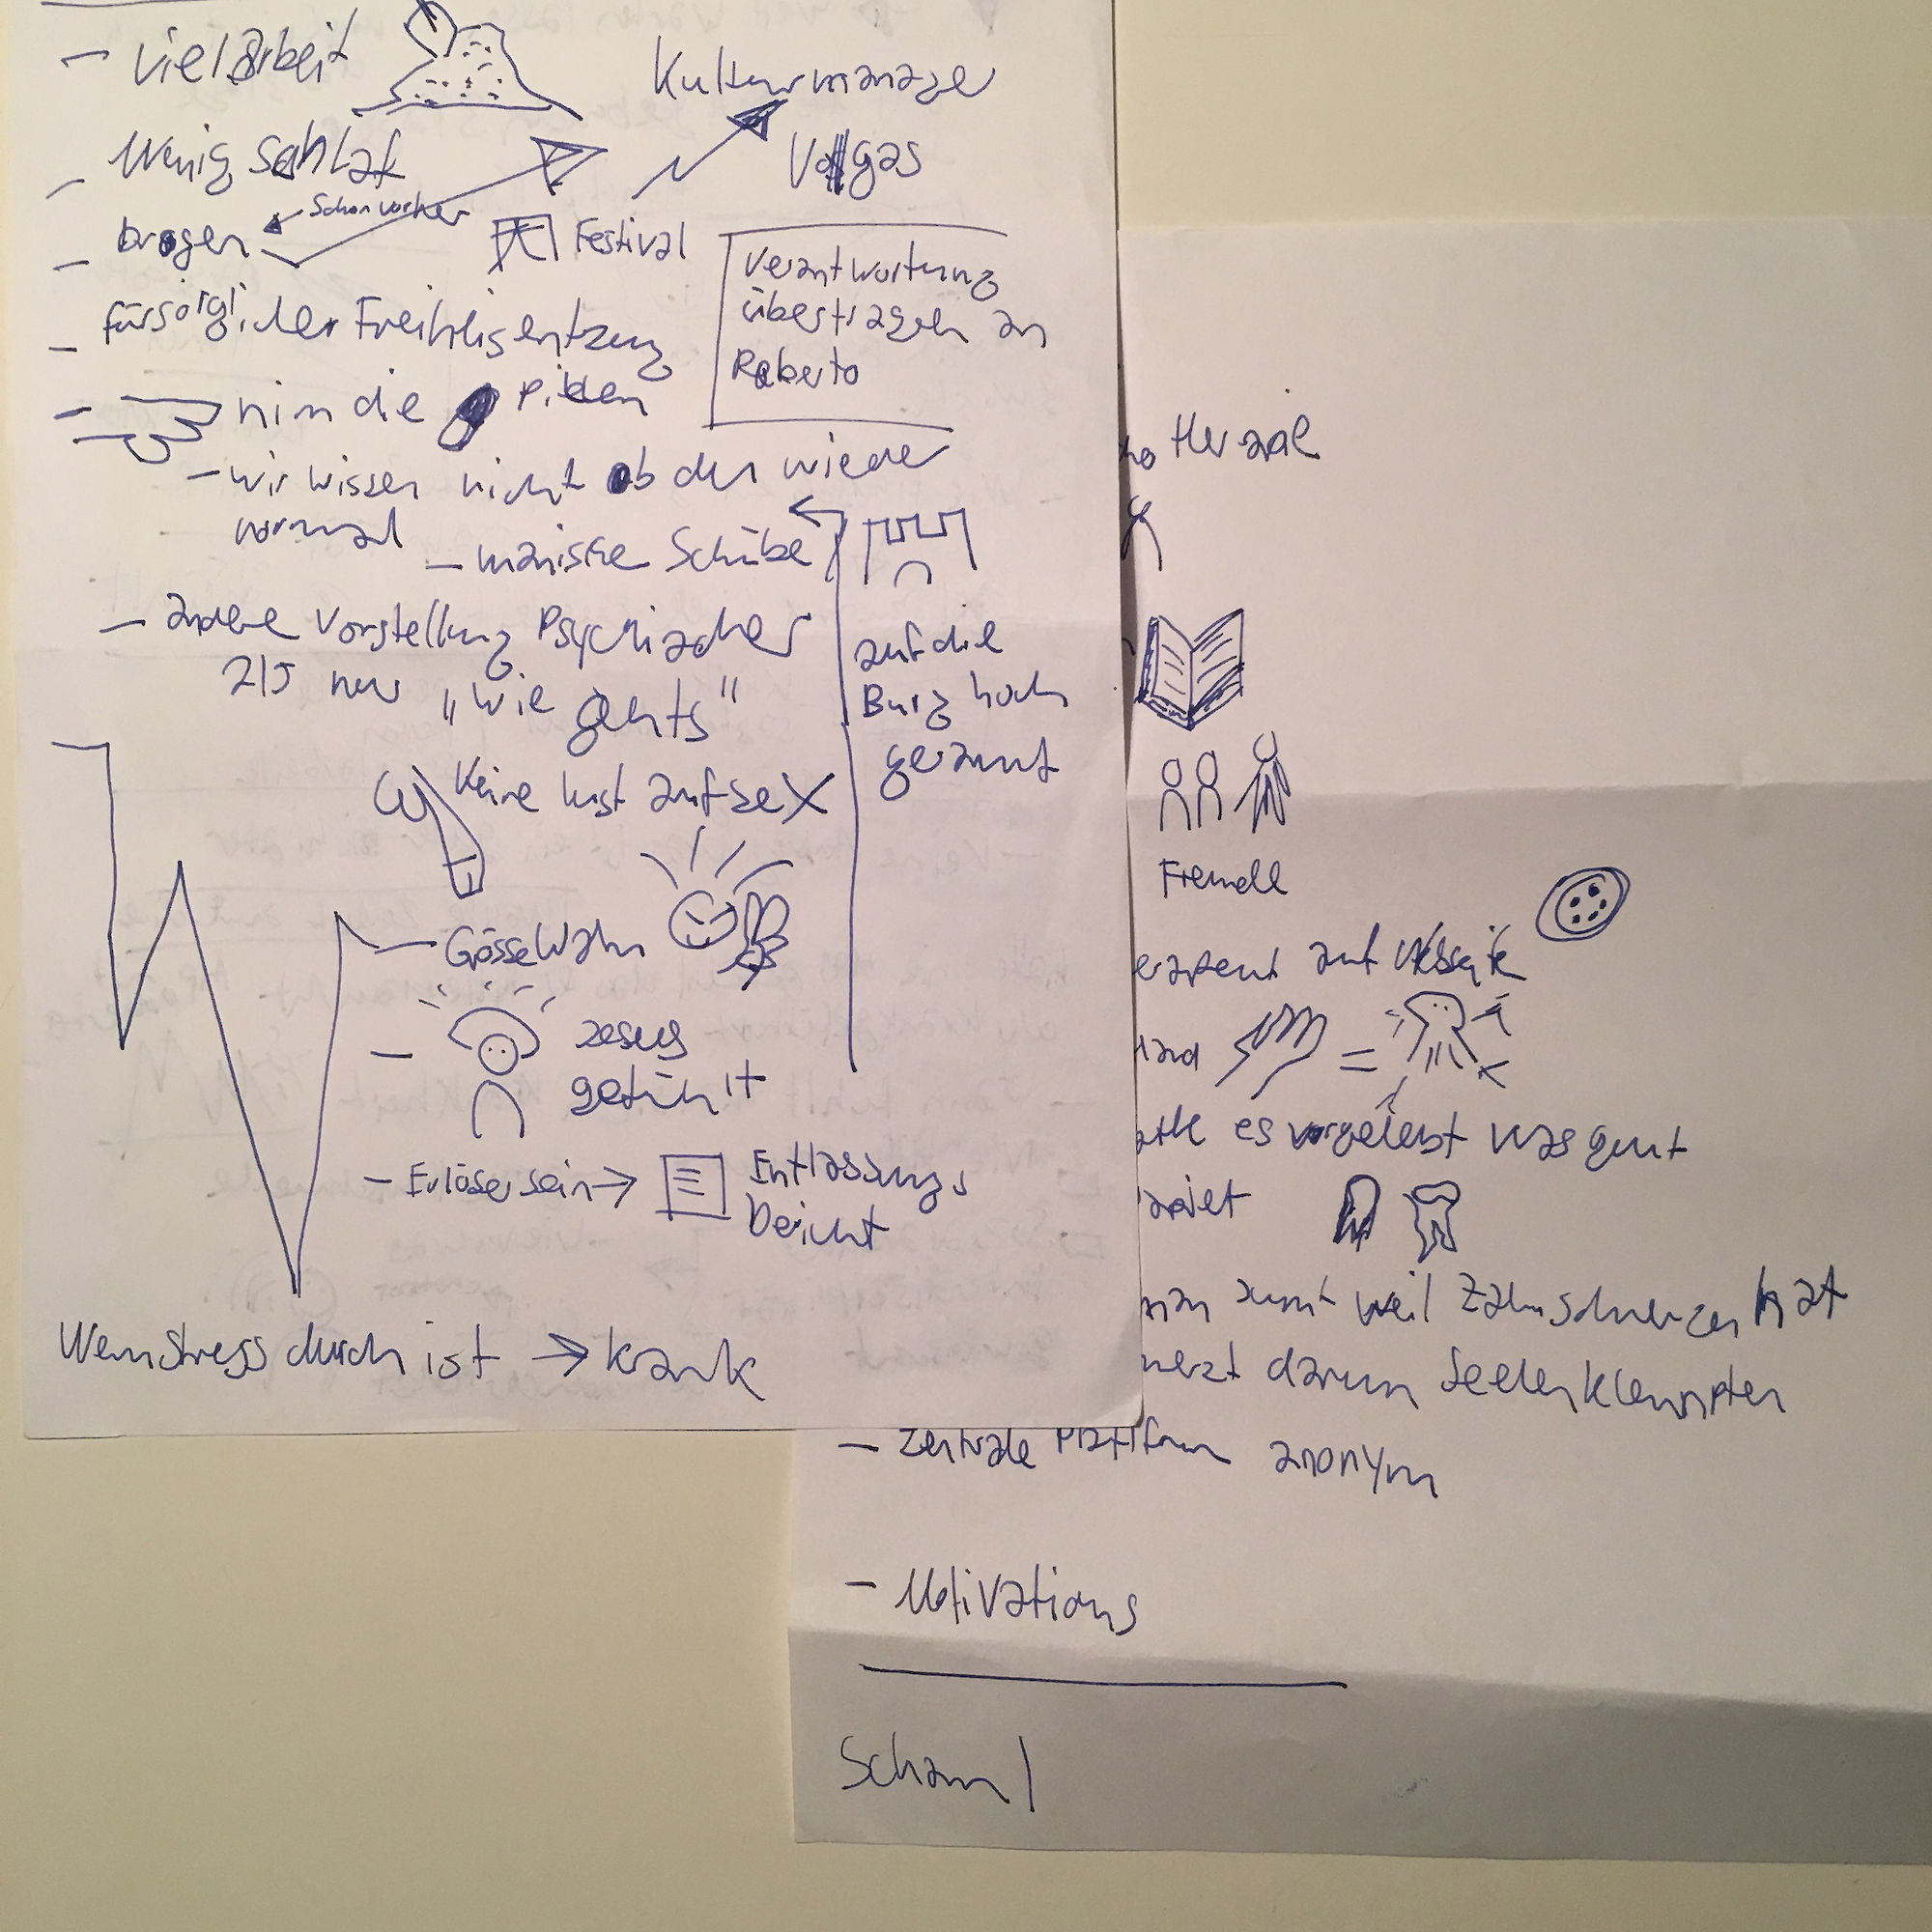 - viel Arbeit
Kulturmanage
- Wenig Schlaf
Vollgas
schon vorher
- Drogen
Festival
Verantwortung
übertragen an
Roberto
- fürsorglicher Freiheitsentzug
- nim die Pillen
- wir wissen nicht ob der wieder
normal
- manische Schübe
auf die
Burg hoch
gerannt
- andere Vorstellung Psychiacher
nur „wie gehts"
Keine lust auf sex
- Grösse Wahn
- Jesus
gefühlt
- Erlöser sein → Entlassungs
bericht
Wenn Stress durch ist → krank
Fremdl
auf Webseite
=
es vorgelebt was gut
weil Zahnschmerzen hat
darum Seelenklempter
- Zentrale Plattform anonym
- Motivations
Scham